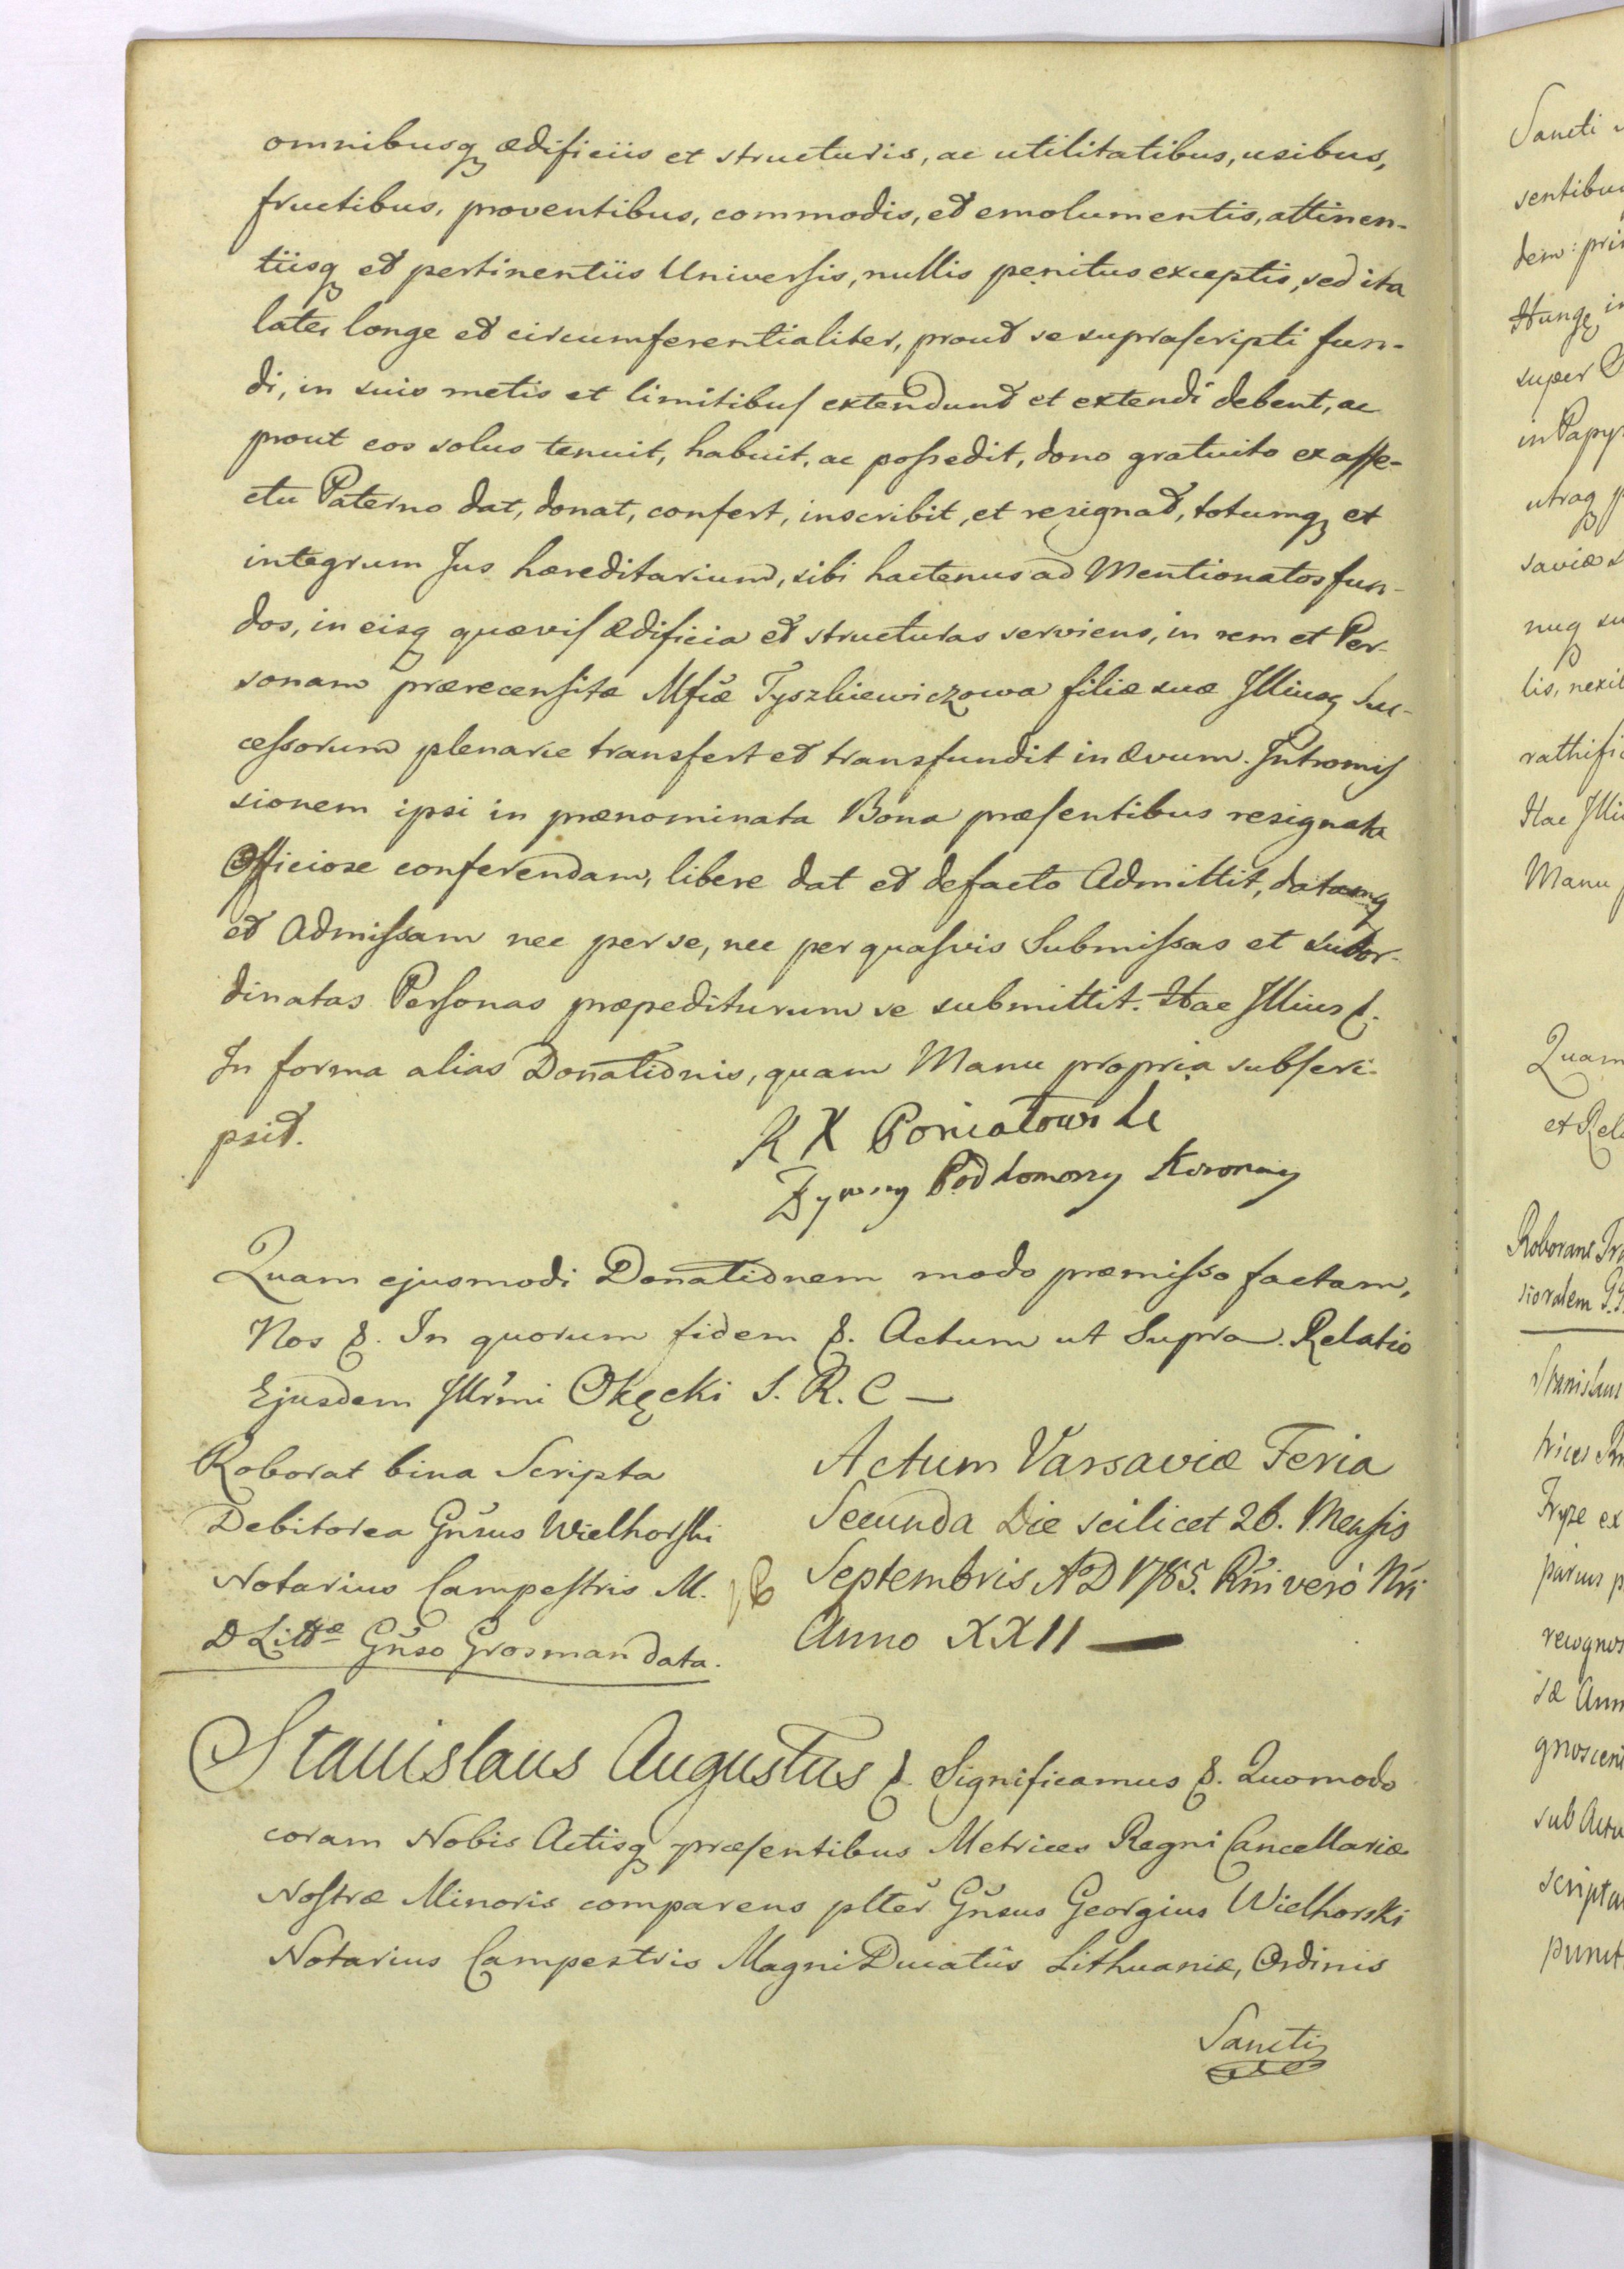 omnibusq ædificiis et structuris, ac utilitatibus, usibus,
fructibus, proventibus, commodis, et emolumentis, attinen-
tiisq et pertinentiis Universis, nullis penitus exceptis, sed ita
late, longe et circumferentialiter, prout se suprascripti fun-
di, in suis metis et limitibus extendunt et extendi debent, ac
prout eos solus tenuit, habuit, ac possedit, dono gratuito ex affe-
ctu Paterno dat, donat, confert, inscribit, et resignat, totumq et
integrum Jus hæreditarium, sibi hactenus ad Mentionatos fun-
dos, in eisq quævis ædificia et structuras serviens, in rem et Per-
sonam prærecensitæ Mfcæ Tyszkiewiczowa filiæ suæ Illiusq Suc-
cessorum plenarie transfert et transfundit in ævum. Intromis
sionem ipsi in prænominata Bona præsentibus resignata
Officiose conferendam, libere dat et defacto Admittit, datamq
et Admissam nec per se, nec per quasvis Submissas et subor-
dinatas Personas præpediturum se submittit. Hac Illius &.
In forma alias Donationis, quam Manu propria subscri-
psit.
K X Poniatowski
Bywszy Podkomorzy Koronny
Quam ejusmodi Donationem modo præmisso factam,
Nos &. In quorum fidem &. Actum ut Supra. Relatio
Ejusdem Illrmi Okęcki S. R. C —
Roborat bina Scripta
Debitorea Gnsus Wielhorski
Notarius Campestris M.
D Littæ Gnso Grosman data.
Actum Varsaviæ Feria
Secunda Die scilicet 26. Mensis
Septembris AoD 1785. Rni verò Nri
Anno XXII —
Stanislaus Augustus &. Significamus &. Quomodo
coram Nobis Actisq præsentibus Metrices Regni Cancellariæ
Nostræ Minoris comparens plter Gnsus Georgius Wielhorski
Notarius Campestris Magni Ducatûs Lithuaniæ, Ordinis
Sancti
Sancti
sentibus
dem: pri
Hungę in
super
in Papyr
utraq p
saviæ s
nuq su
lis, nexib
rathifi
Hac Illi
Manu
Quam
et Rela
Roborans Tra
sioralem
Stanislaus
trices
Tryze ex
parius p
recognos
sæ Ann
gnoscen
sub Actu
scripta
punct